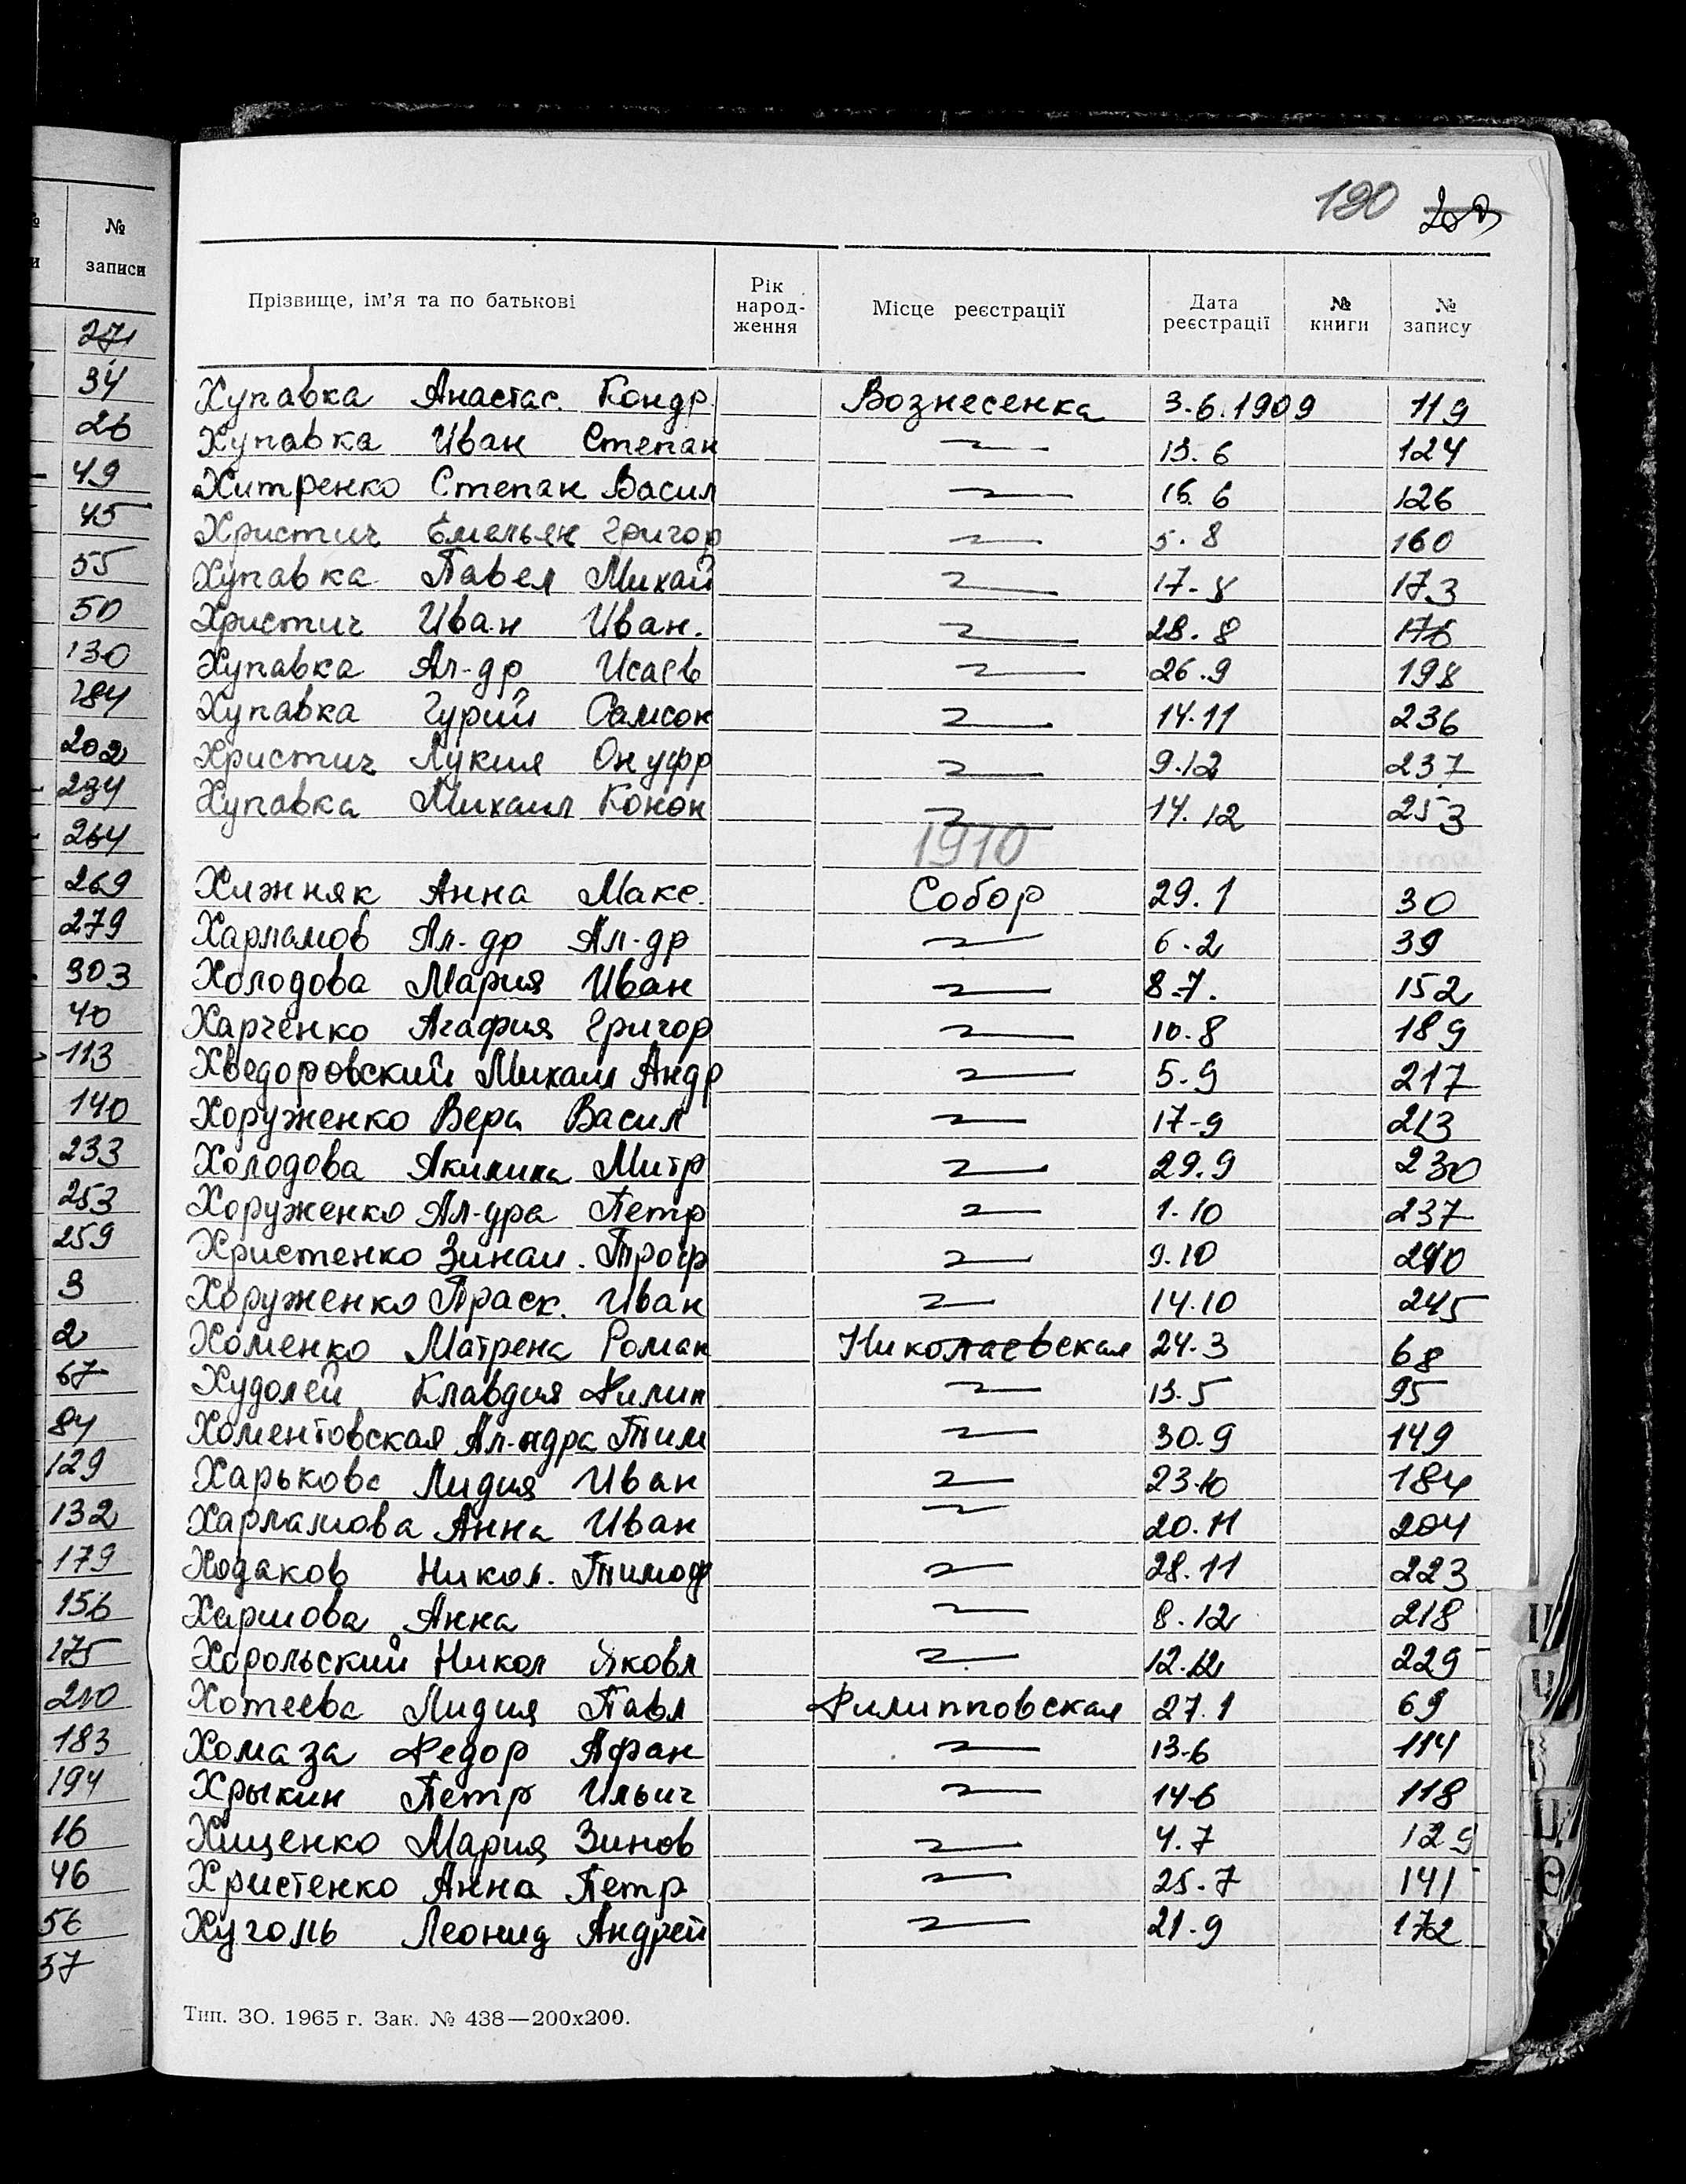 190 203
Прізвище, ім'я та по батькові Рік народ-ження Місце реєстрації Дата реєстрації № книги № запису
Хупавка Анастас. Кондр. Вознесенка 3.6.1909 119
Хупавка Иван Степан 13.6 124
Хитренко Степан Васил 16.6 126
Христич Емельян Григор 5.8 160
Хупавка Павел Михай 17-8 173
Христич Иван Иван. 28.8 176
Хупавка Ал-др Исаев 26.9 198
Хупавка Гурий Самсон 14.11 236
Христич Лукия Онуфр 9.12 237
Хупавка Михаил Конон 14.12 253
1910
Хижняк Анна Макс. Собор 29.1 30
Харламов Ал-др Ал-др 6.2 39
Холодова Мария Иван 8.7. 152
Харченко Агафия Григор 10.8 189
Хведоровский Михаил Андр 5.9 217
Хоруженко Вера Васил 17-9 213
Холодова Акилина Митр 29.9 230
Хоруженко Ал-дра Петр 1.10 237
Христенко Зинаи. Троф 9.10 240
Хоруженко Праск. Иван 14.10 245
Хоменко Матрена Роман Николаевская 24.3 68
Худолей Клавдия Филип 13.5 95
Хоментовская Ал-ндра Тим 30.9 149
Харькова Лидия Иван 23.10 184
Харламова Анна Иван 20.11 204
Ходаков Никол. Тимоф 28.11 223
Анна 8.12 218
Хорольский Никол Яковл 12.12 229
Хотеева Лидия Павл Филипповская 27.1 69
Хомаза Федор Афан 13-6 114
Хрыкин Петр Ильич 14-6 118
Хищенко Мария Зинов 4.7 129
Христенко Анна Петр 25.7 141
Хуголь Леонид Андрей 21.9 172
Тип. ЗО. 1965 г. Зак. № 438—200х200.
№ записи
271
34
26
49
45
55
50
130
184
202
234
264
269
279
303
40
113
140
233
253
259
3
2
67
84
129
132
179
156
175
210
183
194
16
46
56
57